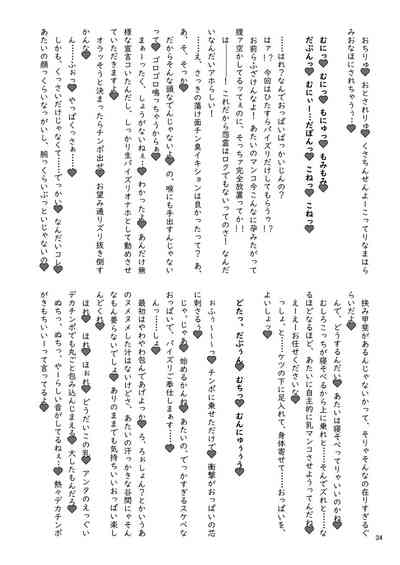 おちりゅ♥おとされりゅ♥くさちんぜんよーこってりなまはら
みおなほにされちゃうぅ♥
むにっ♥むにっ♥もにゅっ♥もみもみ♥
だぷんっ♥むにぃー！…だぽんっ♥こねっ♥こねっ♥
……はれ？なんておっぱいばっかいじんの？
はァ！？今回はひたすらパイズリだけしてもらうワ？
お前らふざけんなよ！あたいのマンコ今こんなに孕みたがって
腹ァ空かしてるってぇのに、そっちゃ完全放置ってか！！
は――――！これだから怨霊はロクでもないってのさ！なんだ
いなんだいアホらしい！
……え、さっきの蕩け面チン臭イキションは良かったって？あ、
あ、そ、そっか♥
だからそんな頭なでんじゃないよ♥の、喉にも手出すんじゃない
って♥ゴロゴロ鳴っちゃうからぁ♥
まぁーったく、しょうがないねぇ♥わかったよ♥あんだけ無
様な宣言コいたんだし、しっかり生パイズリオナホとして勤めさせ
ていただきますよ♥
オラッそうと決まったらチンポ出せ♥お望み通りズリ抜き倒す
かんな♥
ん……ぷぉ♥やっぱくっさぁ…♥
しかも、くっさいだけじゃなくて……でっかい♥なんだいコレ♥
あたいの顔っくらいながいし、腕っくらいぶっといじゃないの♥
挟み甲斐があるんじゃないかって、そりゃそんなの在りすぎるぐ
らいだよ♥
んで、どうするんだい♥あたいは寝そべってりゃいいのかね♥
むしろこっちが寝そべるから上に乗れと……そんでズれと……な
るほどなるほど、あたいに自主的に乳マンコさせようってんだね♥
えーえーお任せくださいな♥
っしょ、と……ケツの下に足入れて、身体寄せて……おっぱいを、
よいしょッ♥
どたっ♥だぷぅん♥むちっ♥むんにゅぅぅぅ♥
おふぅ～～～っ♥チンポに乗せただけで♥衝撃がおっぱいの芯
に刺さるぅ♥
じゃ、じゃあ♥始めるかんね♥あたいの、でっかすぎるスケベな
おっぱいで、パイズリご奉仕しまぁす……♥
んっ……しょ♥
最初はやわやわ包んであげよっか♥ろ、ろおしょん？とかいうあ
のヌメヌメした汁はないけどさ♥あたいの汗っかきな谷間にゃそん
なもん要らないでしょ♥ありのままでも気持ちいいおっぱい楽し
んどくれ♥
ほれ♥ほれ♥ほぉれ♥どうだいこの乳♥アンタのえっぐい
デカチンポでも丸ごと包み込じまえる♥大したもんだろ♥
ぬちっ♥ぬちっ♥やーらしい音がしてるねぇ♥熱々デカチンポ
がきもちいいーって言ってるよ♥
24